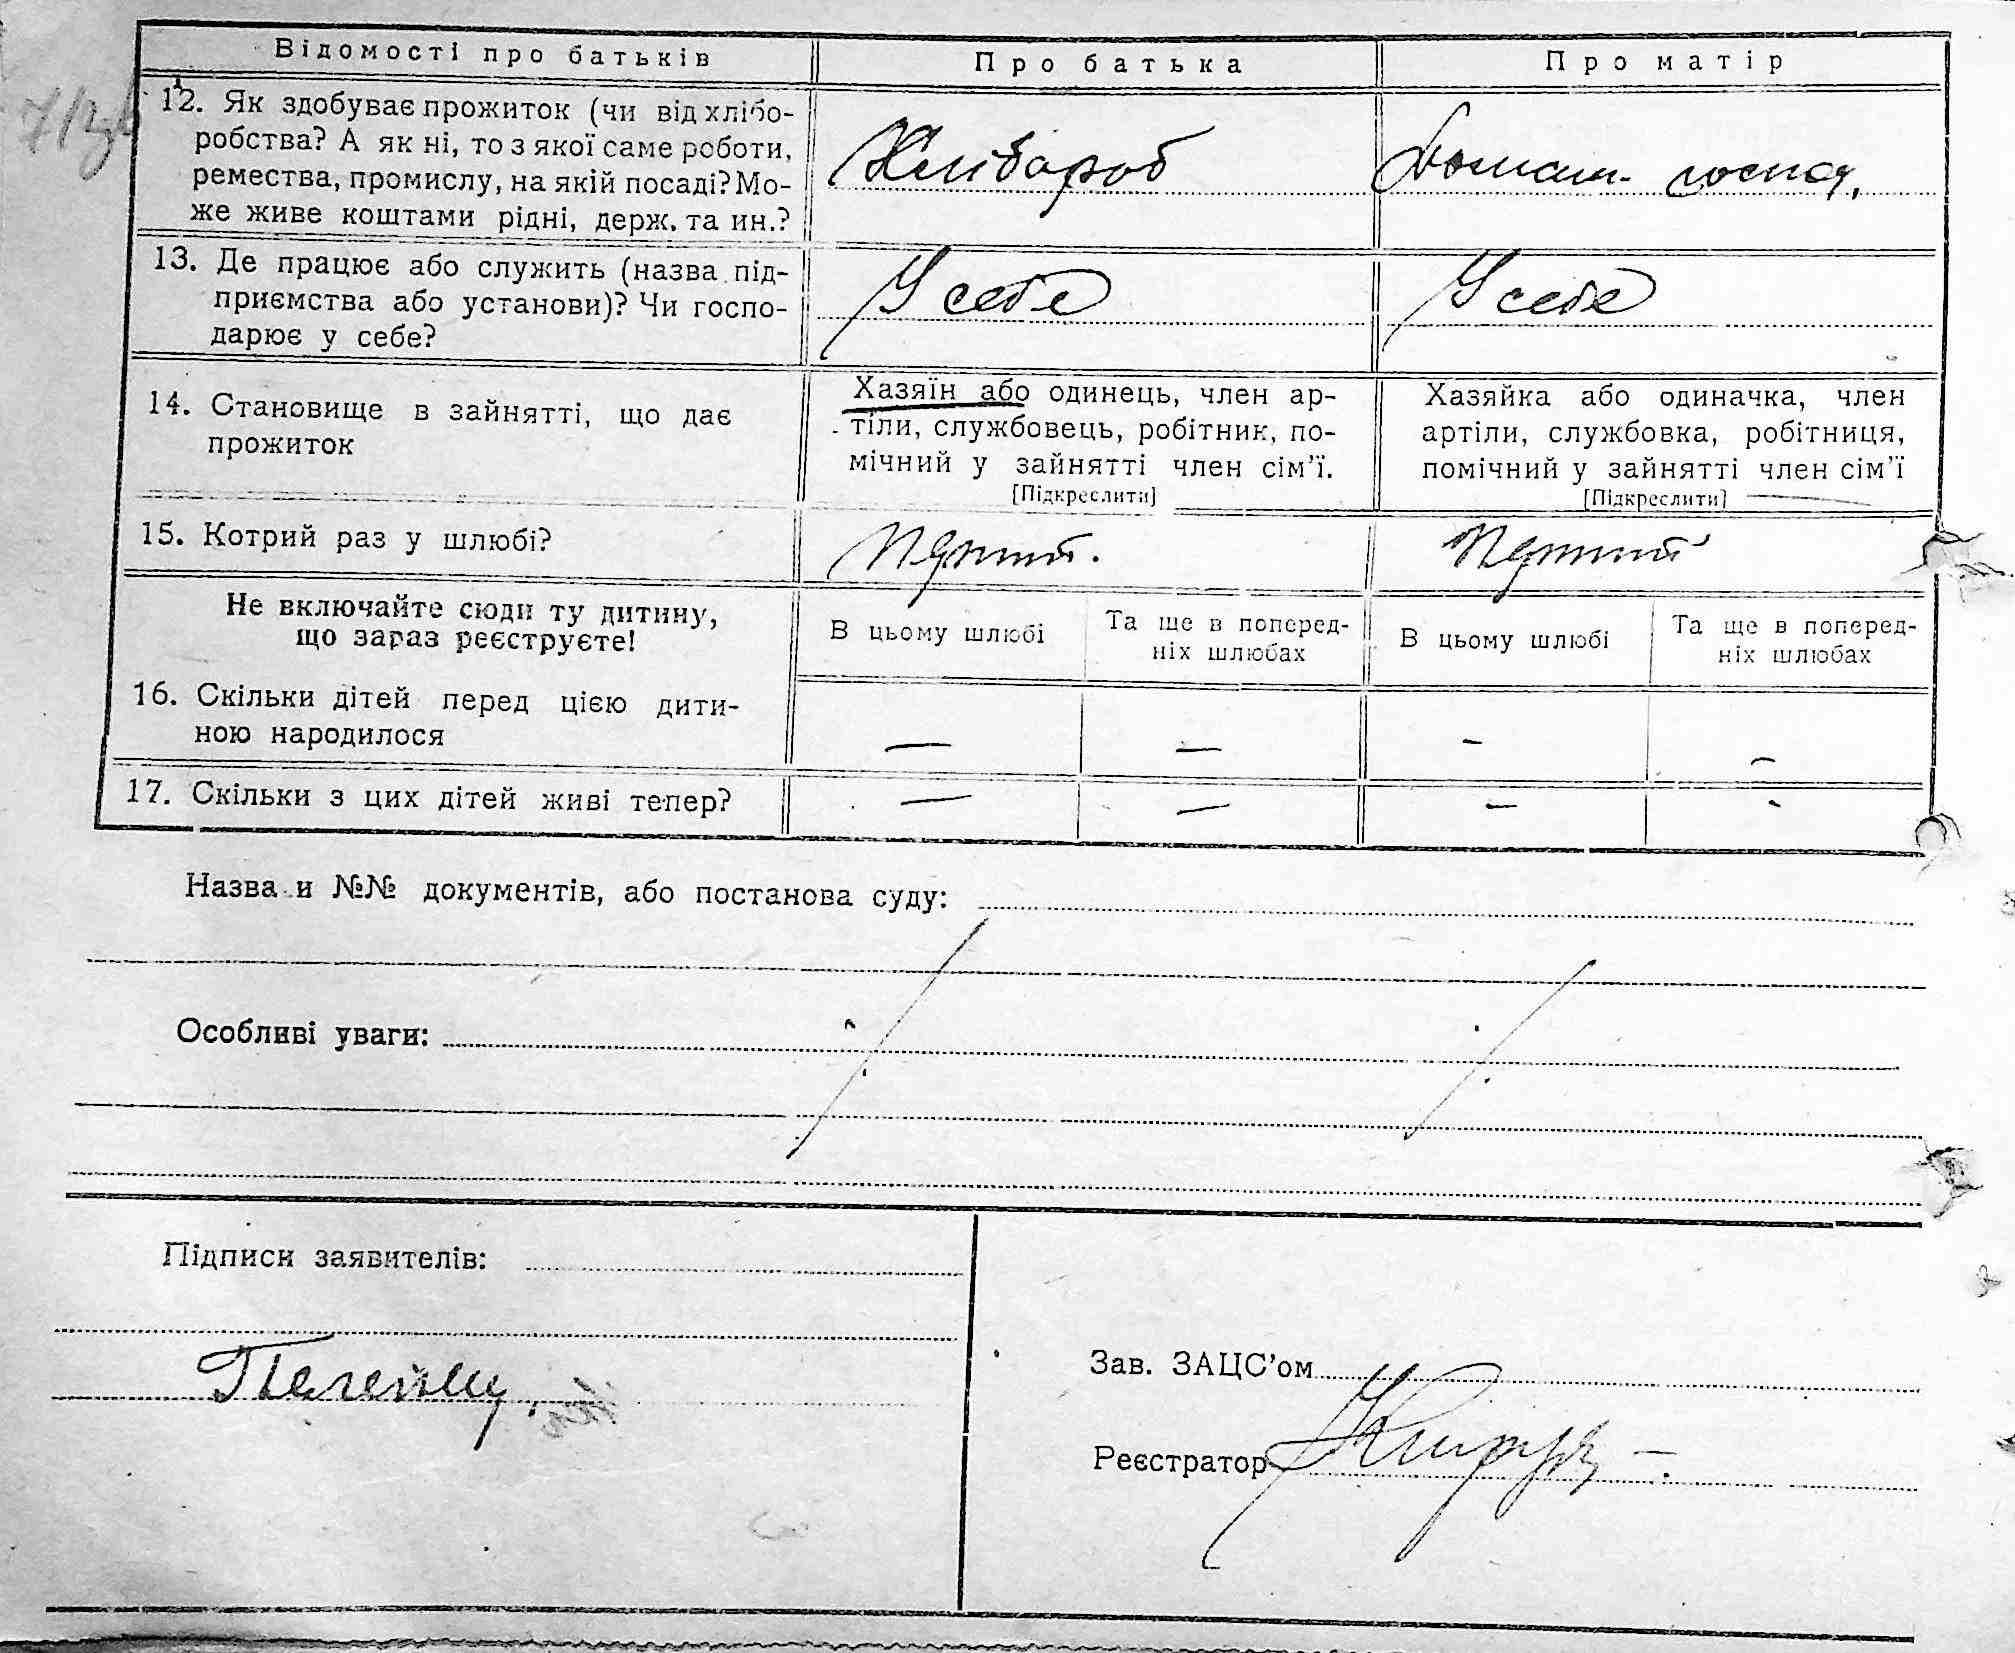 Відомості про батьків
Про батька
Про матір
12. Як здобуває прожиток (чи від хлібо-
робства? А як ні, то з якої саме роботи,
ремества, промислу, на якій посаді? Мо-
же живе коштами рідні, держ. та ин.?
Хлібороб
Домаш. господ.
13. Де працює або служить (назва під-
приємства або установи)? Чи госпо-
дарює у себе?
У себе
У себе
14. Становище в зайнятті, що дає
прожиток
Хазяїн або одинець, член ар-
тіли, службовець, робітник, по-
мічний у зайнятті член сім'ї.
[Підкреслити]
Хазяйка або одиначка, член
артіли, службовка, робітниця,
помічний у зайнятті член сім'ї
[Підкреслити]
15. Котрий раз у шлюбі?
Перший.
Перший
Не включайте сюди ту дитину,
що зараз реєструєте!
В цьому шлюбі
Та ще в поперед-
ніх шлюбах
В цьому шлюбі
Та ще в поперед-
ніх шлюбах
16. Скільки дітей перед цією дити-
ною народилося
— — - -
17. Скільки з цих дітей живі тепер?
— — - -
Назва и №№ документів, або постанова суду:
Особливі уваги:
Підписи заявителів:
Зав. ЗАЦС'ом
Реєстратор